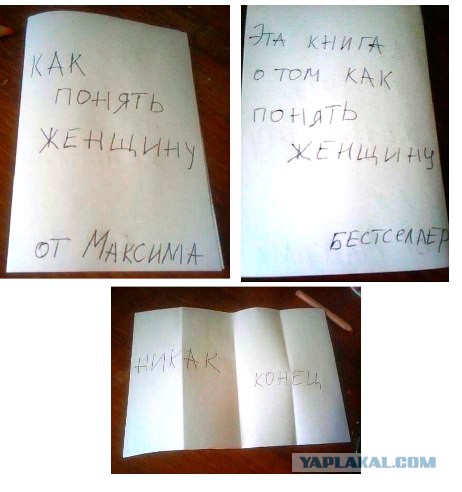 КАК
ПОНЯТЬ
ЖЕНЩИНУ
ОТ МАКСИМА
ЭТА КНИГА
О ТОМ КАК
ПОНЯТЬ
ЖЕНЩИНУ
БЕСТСЕЛЛЕР
НИКАК
КОНЕЦ
YAPLAKAL.COM